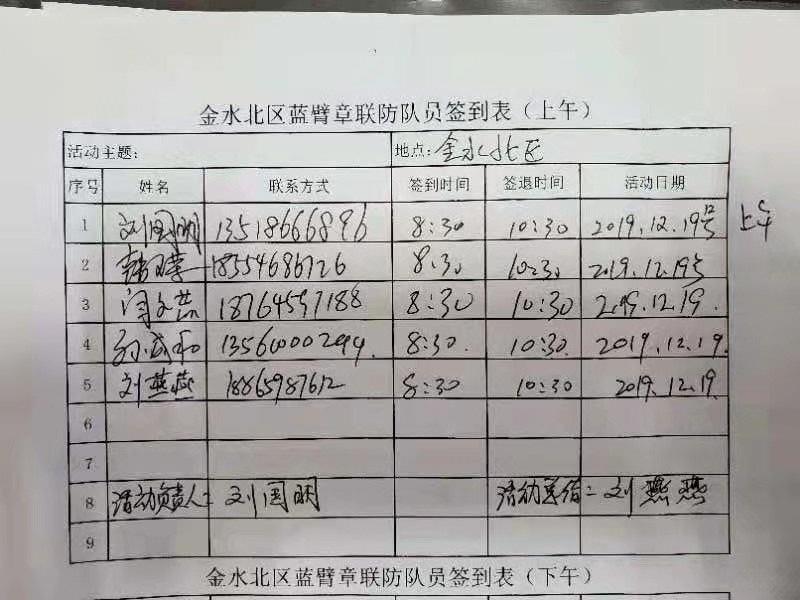 金水北区蓝臂章联防队员签到表（上午）
活动主题： 地点：金水北区
序号 姓名 联系方式 签到时间 签退时间 活动日期
1 刘国明 13518666896 8:30 10:30 2019.12.19号 上午
2 18554686726 8:30 10:30 2019.12.19号
3 闫文芸 18764597188 8:30 10:30 2019.12.19.
4 8:30. 10:30. 2019.12.19.
5 刘燕燕 18865987612 8:30 10:30 2019.12.19.
6
7
8 活动负责人：刘国明 活动总结：刘燕燕
9
金水北区蓝臂章联防队员签到表（下午）